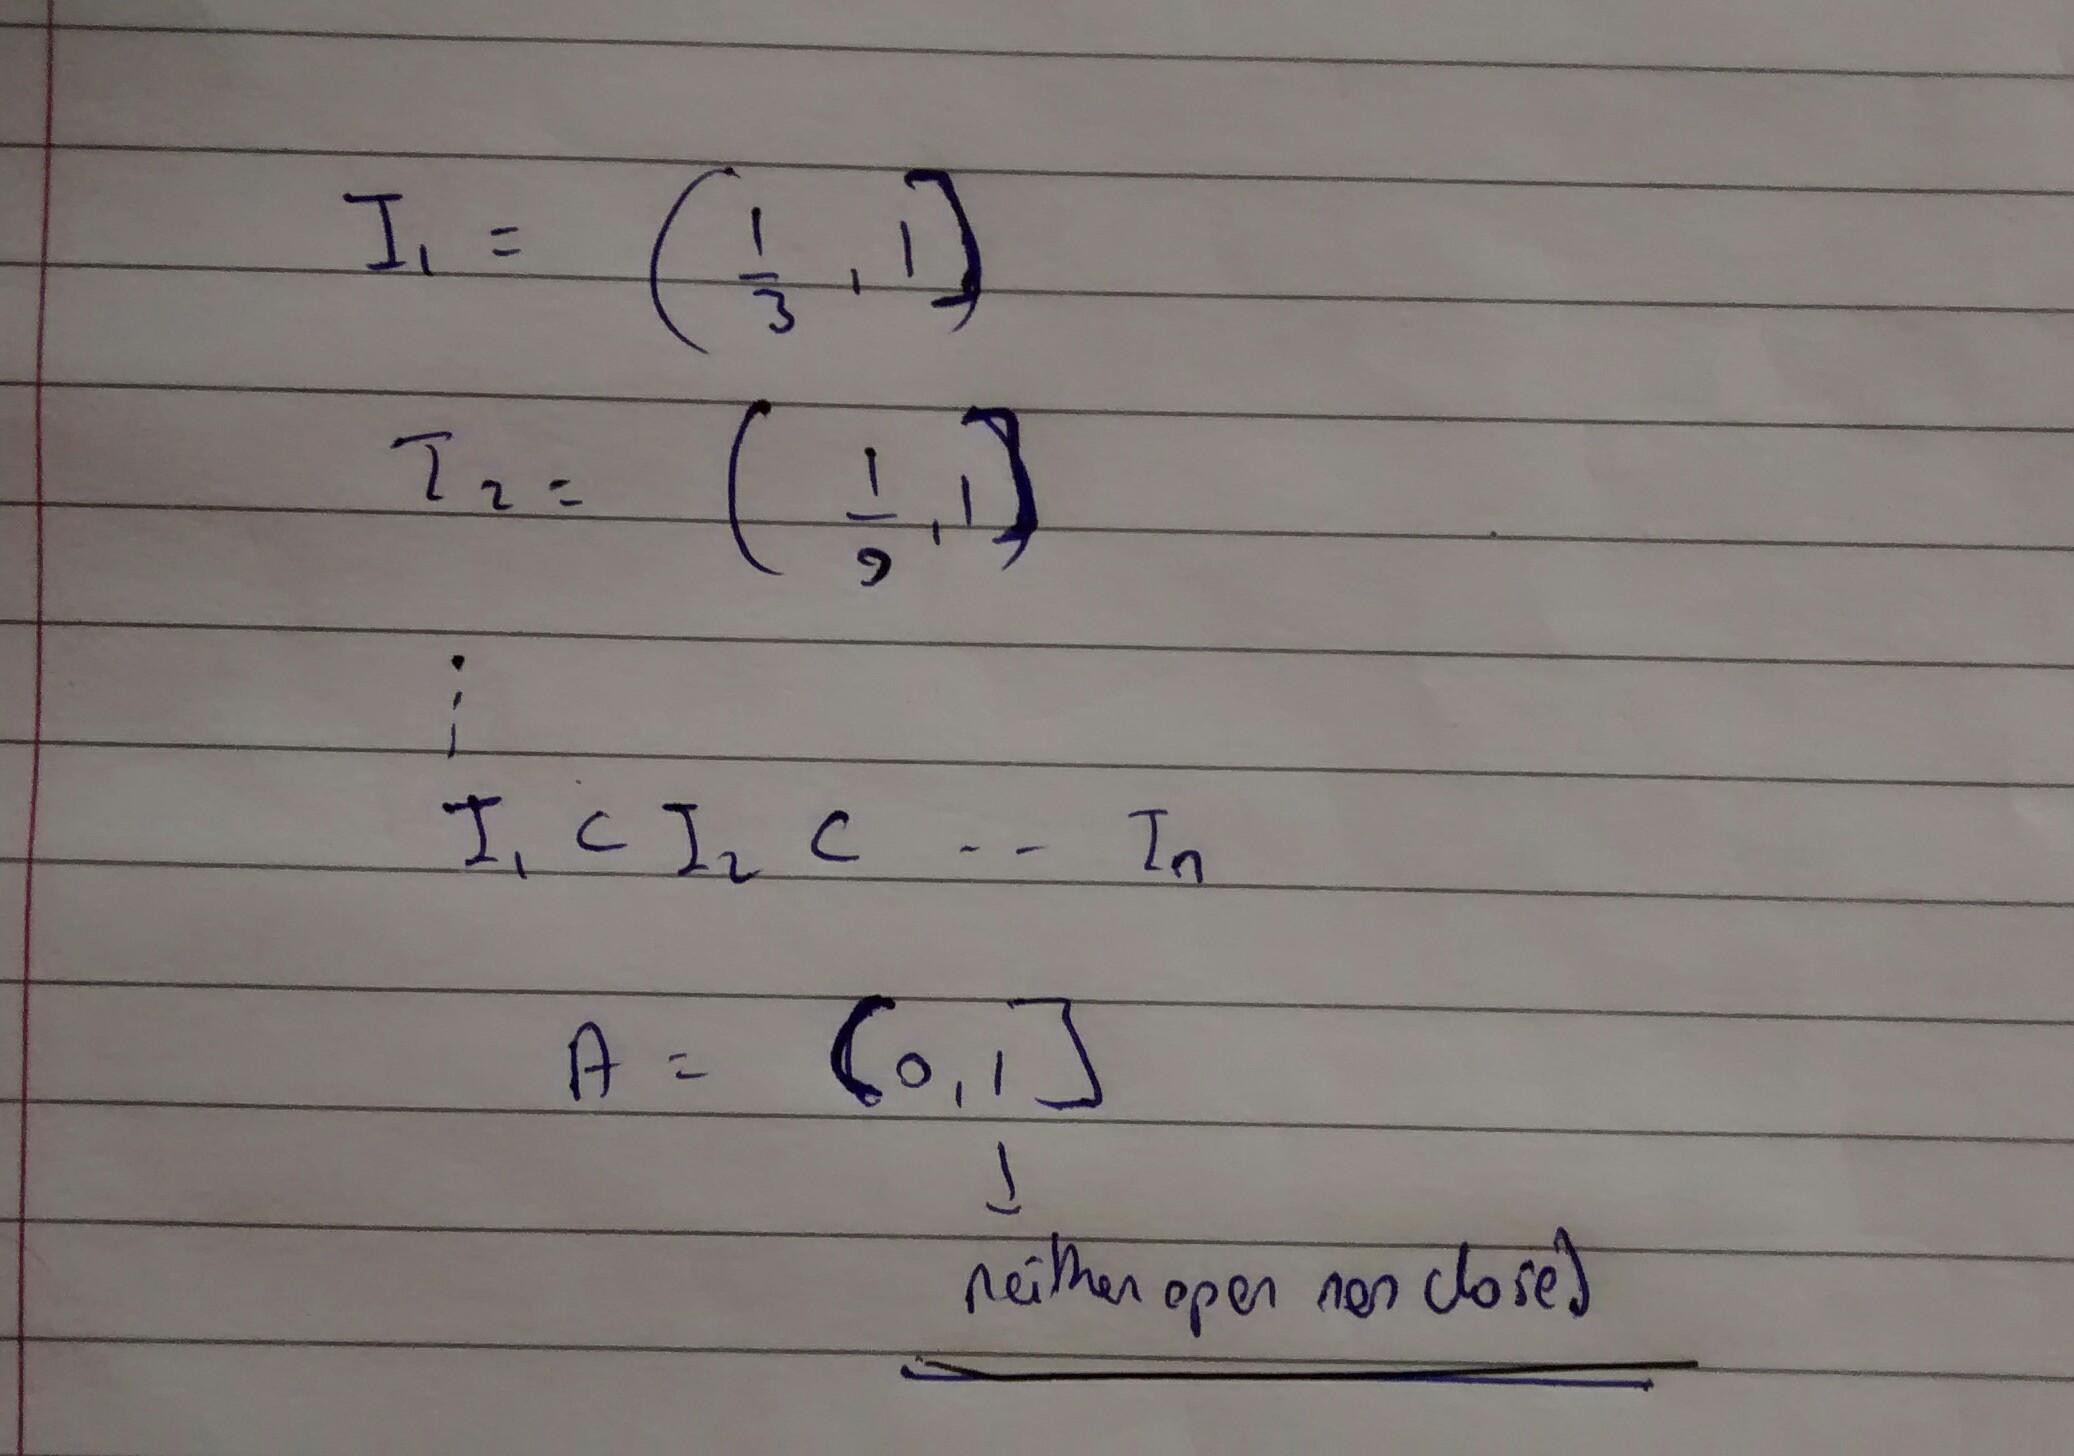 I₁ = (1/3, 1]
I₂ = (1/9, 1]
⋮
I₁ ⊂ I₂ ⊂ -- Iₙ
A = (0, 1]
↓
neither open nor closed